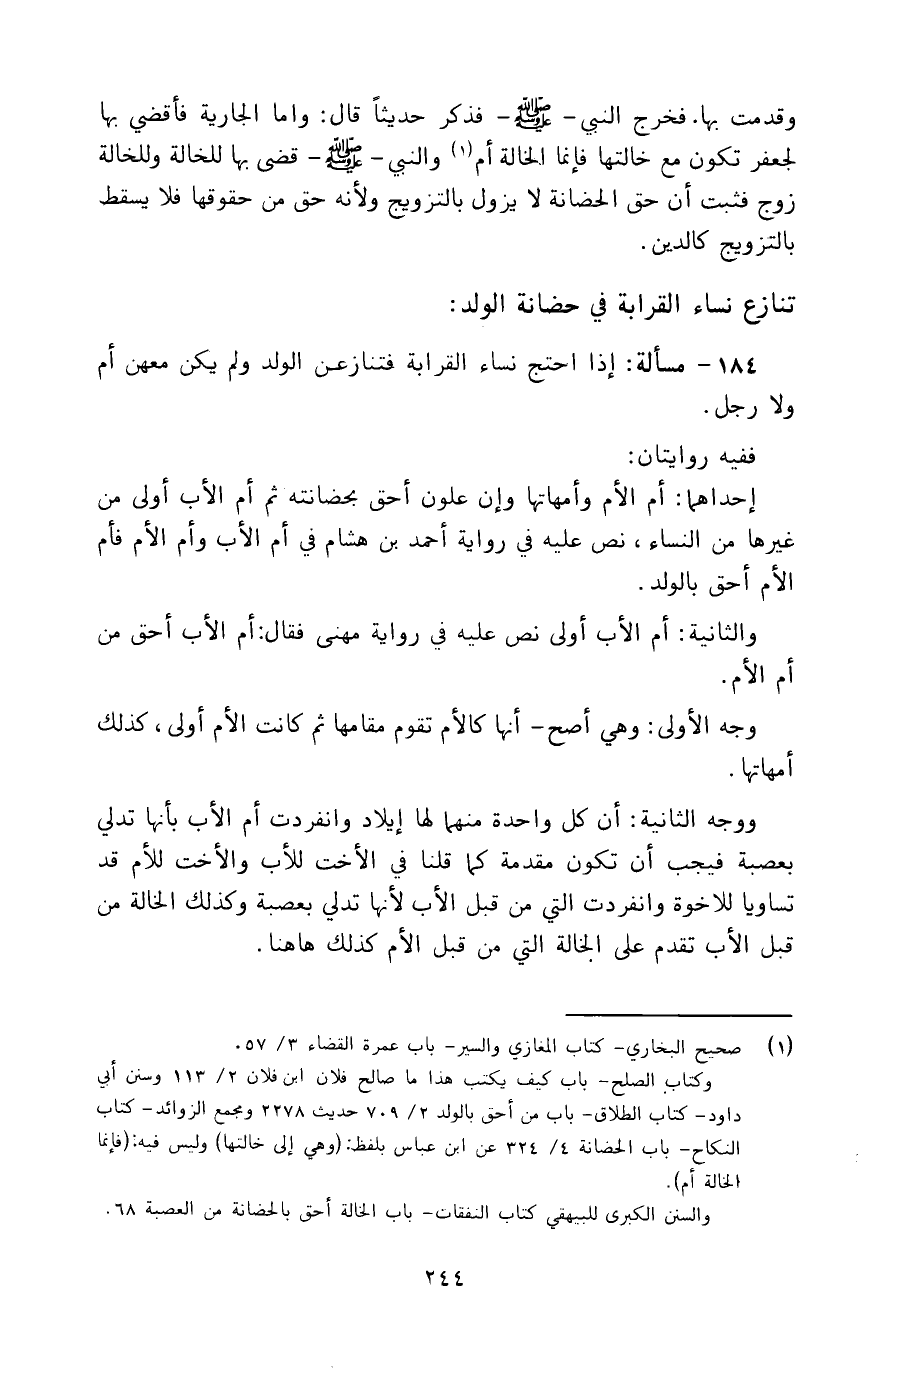 وقدمت بها. فخرج النبي - ﷺ - فذكر حديثاً قال: واما الجارية فأقضي بها
لجعفر تكون مع خالتها فإنما الخالة أم(١) والنبي - ﷺ - قضى بها للخالة وللخالة
زوج فثبت أن حق الحضانة لا يزول بالتزويج ولأنه حق من حقوقها فلا يسقط
بالتزويج كالدين.
تنازع نساء القرابة في حضانة الولد:
١٨٤ - مسألة: إذا احتج نساء القرابة فتنازعن الولد ولم يكن معهن أم
ولا رجل.
ففيه روايتان:
إحداهما: أم الأم وأمهاتها وإن علون أحق بحضانته ثم أم الأب أولى من
غيرها من النساء، نص عليه في رواية أحمد بن هشام في أم الأب وأم الأم فأم
الأم أحق بالولد.
والثانية: أم الأب أولى نص عليه في رواية مهنى فقال: أم الأب أحق من
أم الأم.
وجه الأولى: وهي أصح - أنها كالأم تقوم مقامها ثم كانت الأم أولى، كذلك
أمهاتها.
ووجه الثانية: أن كل واحدة منهما لها إيلاد وانفردت أم الأب بأنها تدلي
بعصبة فيجب أن تكون مقدمة كما قلنا في الأخت للأب والأخت للأم قد
تساويا للاخوة وانفردت التي من قبل الأب لأنها تدلي بعصبة وكذلك الخالة من
قبل الأب تقدم على الخالة التي من قبل الأم كذلك هاهنا.
(١) صحيح البخاري - كتاب المغازي والسير - باب عمرة القضاء ٣/ ٥٧.
وكتاب الصلح - باب كيف يكتب هذا ما صالح فلان ابن فلان ٢/ ١١٣ وسنن أبي
داود - كتاب الطلاق - باب من أحق بالولد ٢/ ٧٠٩ حديث ٢٢٧٨ ومجمع الزوائد - كتاب
النكاح - باب الحضانة ٤/ ٣٢٤ عن ابن عباس بلفظ: (وهي إلى خالتها) وليس فيه: (فإنما
الخالة أم).
والسنن الكبرى للبيهقي كتاب النفقات - باب الخالة أحق بالحضانة من العصبة ٦٨.
٢٤٤